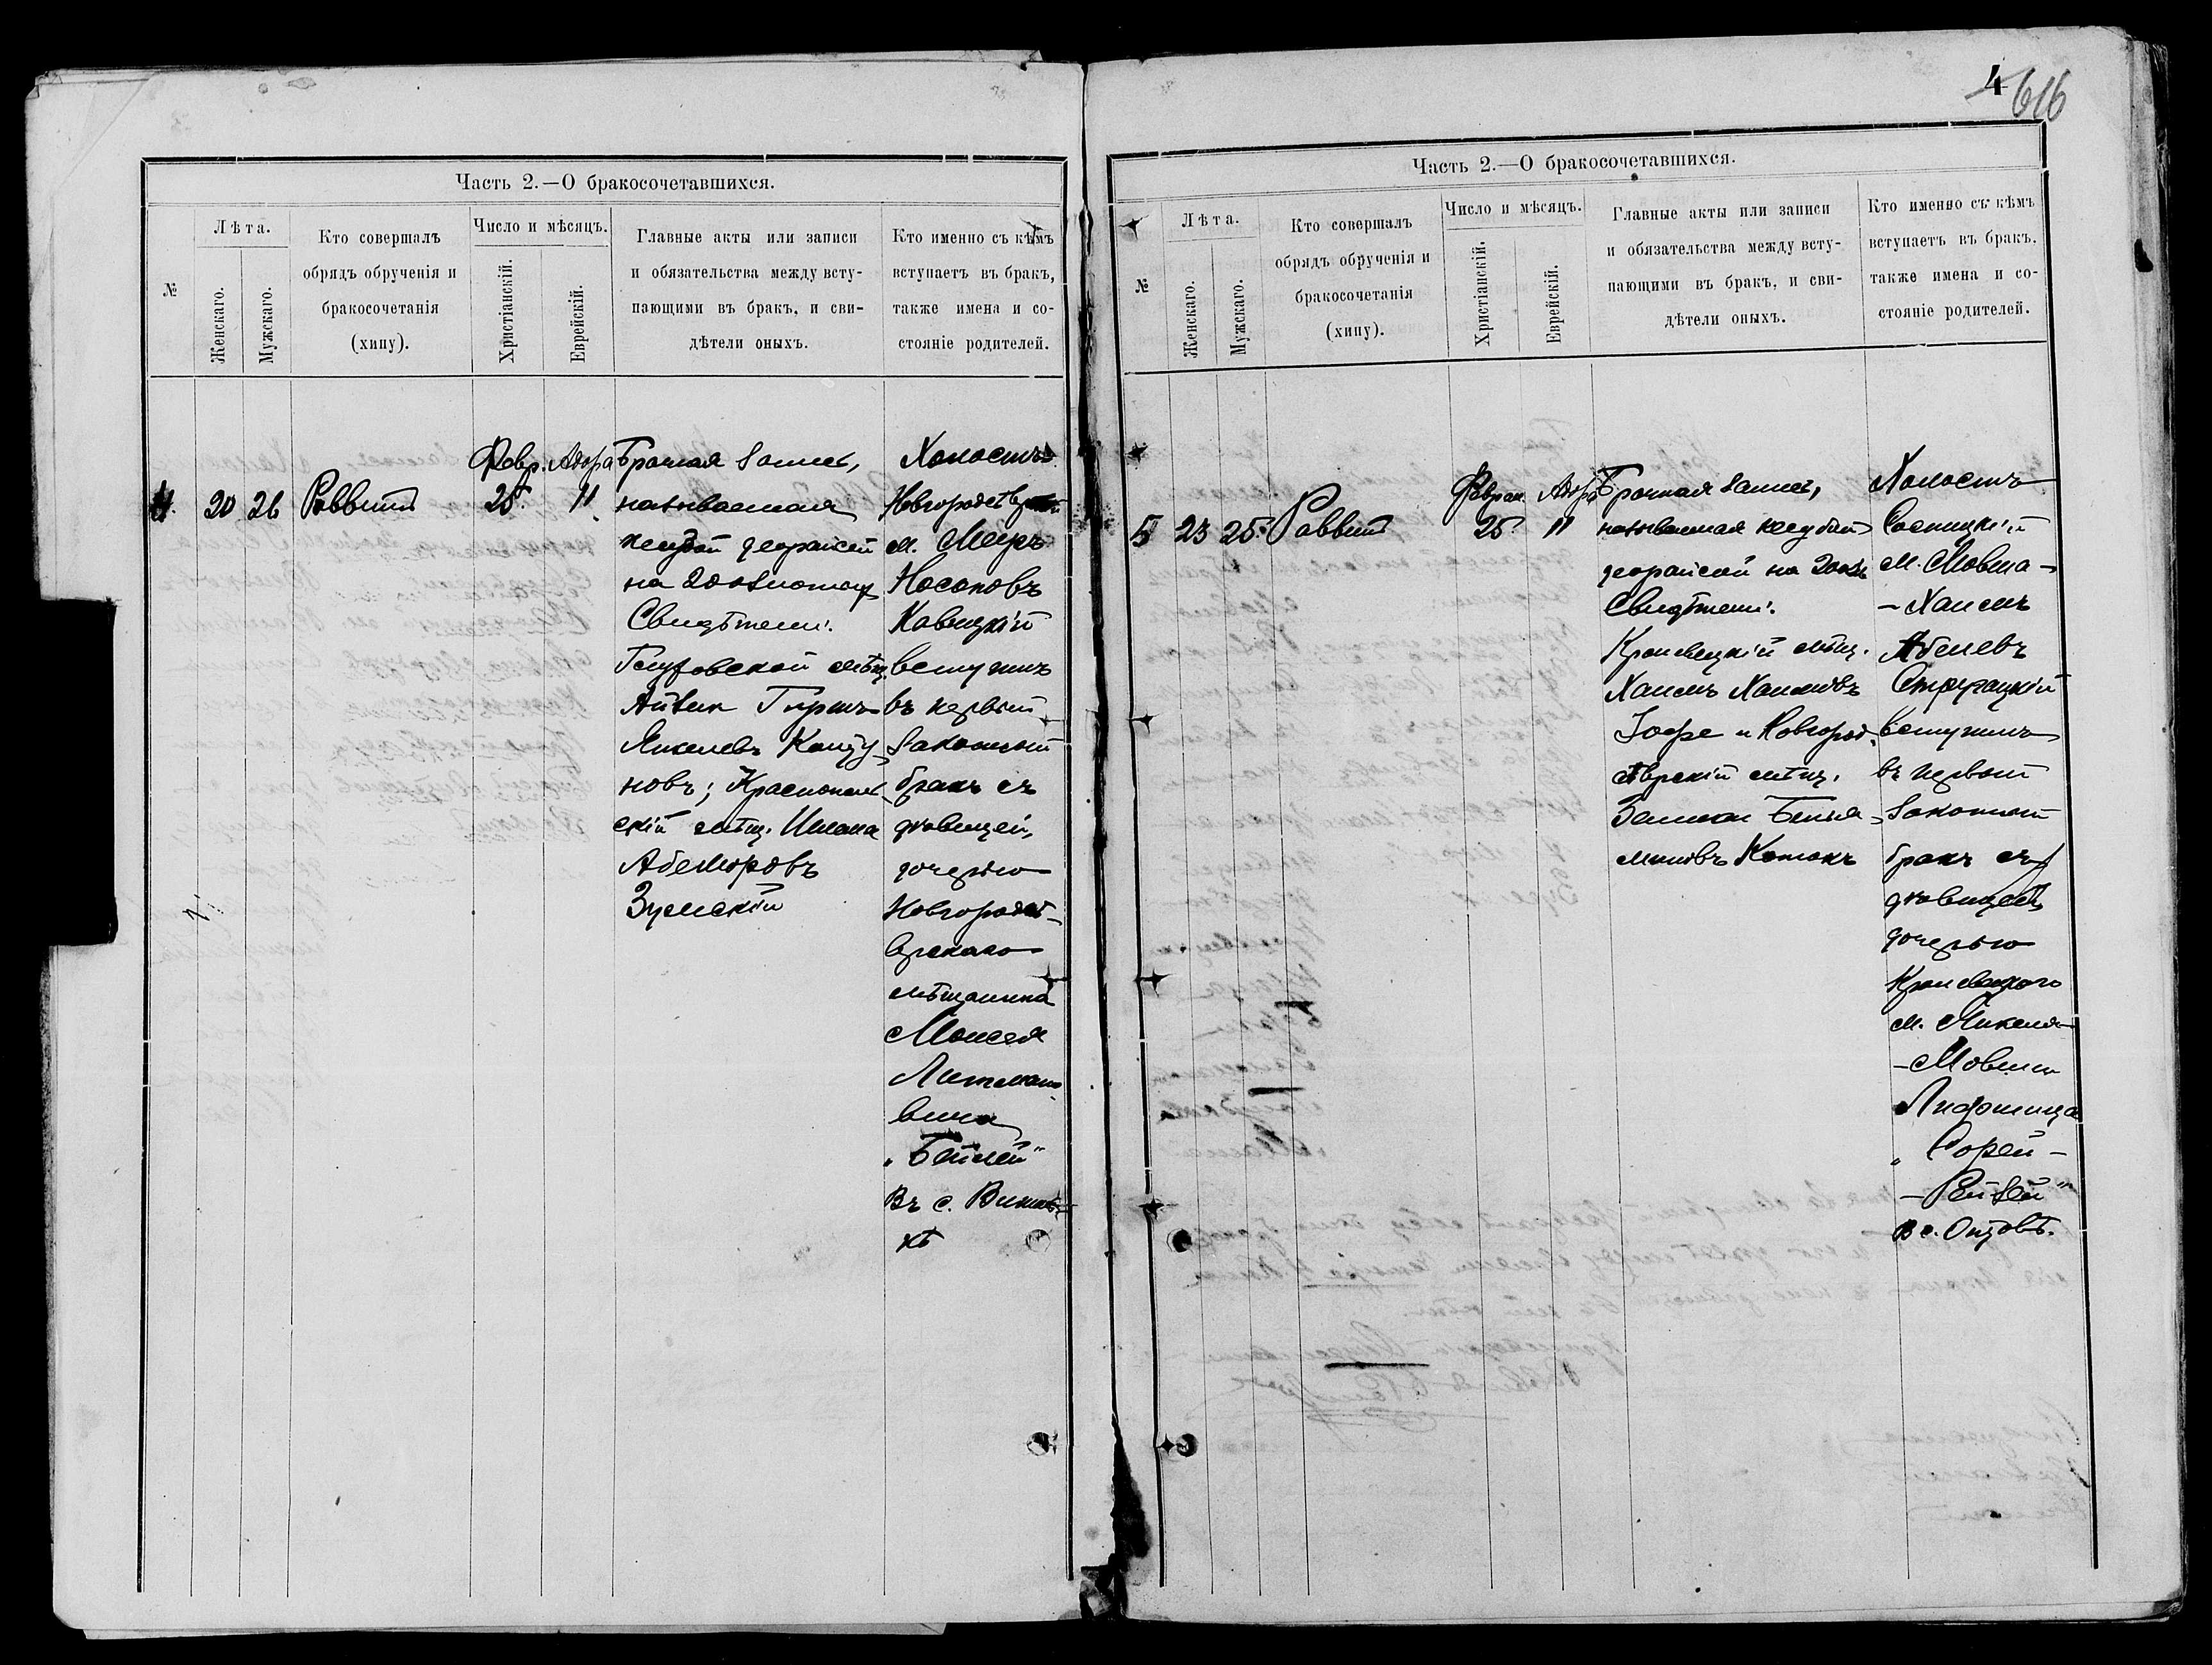 Часть 2.—О бракосочетавшихся.
№
Лѣта.
Женскаго.
Мужскаго.
Кто совершалъ
обрядъ обрученія и
бракосочетанія
(хипу).
Число и мѣсяцъ.
Христіанскій.
Еврейскій.
Главные акты или записи
и обязательства между всту-
пающими въ бракъ, и сви-
дѣтели оныхъ.
Кто именно съ кѣмъ
вступаетъ въ бракъ,
также имена и со-
стояніе родителей.
4.
20
26
Раввинъ
Февр.
25.
Адора
11
Брачная запись,
называемая
кесубой деорайсей
на 200 злотыхъ
Свидѣтели:
мѣщ.
Айзикъ Гиршъ
Янкелевъ
новъ; Краснополь
скій мѣщ.
Зуевскій
Холостъ
Новгородсѣвер
м. Мееръ
Носоновъ
Кавицкій
вступилъ
въ первый
законный
бракъ съ
дѣвицей,
дочерью
Новгородсѣ-
верскаго
мѣщанина
Моисея
Литмано
вича
„Бейлей"
Въ с.
4
616
Часть 2.—О бракосочетавшихся.
№
Лѣта.
Женскаго.
Мужскаго.
Кто совершалъ
обрядъ обрученія и
бракосочетанія
(хипу).
Число и мѣсяцъ.
Христіанскій.
Еврейскій.
Главные акты или записи
и обязательства между всту-
пающими въ бракъ, и сви-
дѣтели оныхъ.
Кто именно съ кѣмъ
вступаетъ въ бракъ,
также имена и со-
стояніе родителей.
5
23
25.
Раввинъ
Феврал
25.
Адора
11
Брачная запись,
называемая кесубой
деорайсой на 200 зл
Свидѣтели:
Кролевецкій мѣщ.
Хаимъ Хаимовъ
Іофе и Новгород.
сѣверскій мѣщ.
Залман Бенья-
миновъ
Холостъ
Сосницкій
м. Мовша-
-Хаимъ
Абелевъ
вступилъ
въ первый
законный
бракъ съ
дѣвицей,
дочерью
Кролевецкого
м. Янкеля-
-Мовши
Лифшица
„Сорей-
-Рейзей"